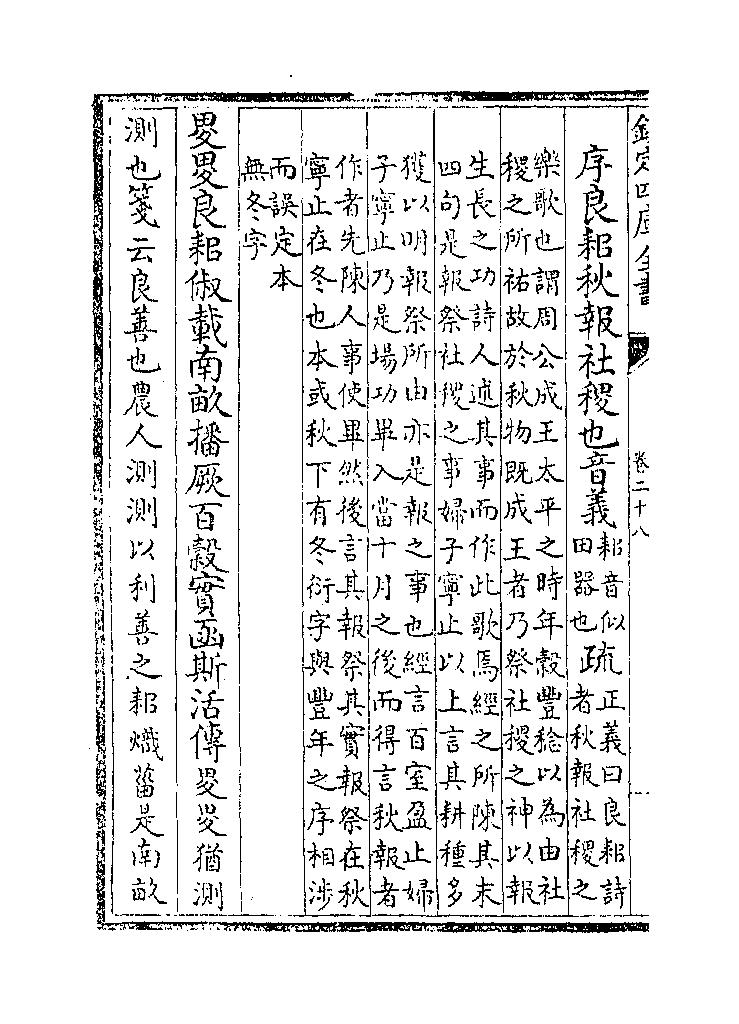 欽定四庫全書
卷二十八
序良耜秋報社稷也音義
耜音似
田器也
疏
正義曰良耜詩
者秋報社稷之
樂歌也謂周公成王太平之時年穀豐稔以為由社
稷之所祐故於秋物既成王者乃祭社稷之神以報
生長之功詩人述其事而作此歌焉經之所陳其末
四句是報祭社稷之事婦子寧止以上言其耕種多
獲以明報祭所由亦是報之事也經言百室盈止婦
子寧止乃是場功畢入當十月之後而得言秋報者
作者先陳人事使畢然後言其報祭其實報祭在秋
寧止在冬也本或秋下有冬衍字與豐年之序相涉
而誤定本
無冬字
畟畟良耜俶載南畝播厥百穀實函斯活傳畟畟猶測
測也箋云良善也農人測測以利善之耜熾菑是南畝